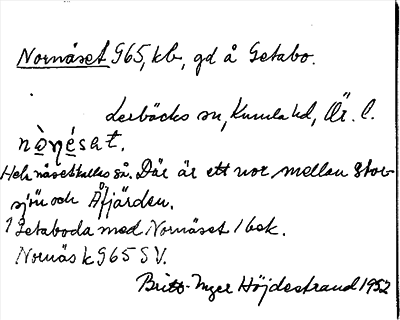 Nornäset G65, kb, gd å Getabo.
Lerbäcks sn, Kumla hd, Ör. l.
nò̱ṇé̱sat.
Hela näset kallas så. Där är ett nor mellan Stor-
sjön och Åfjärden.
1 Getaboda med Nornäset 1 bok.
Nornäs k G65 SV.
Britt-Inger Höjdestrand 1952